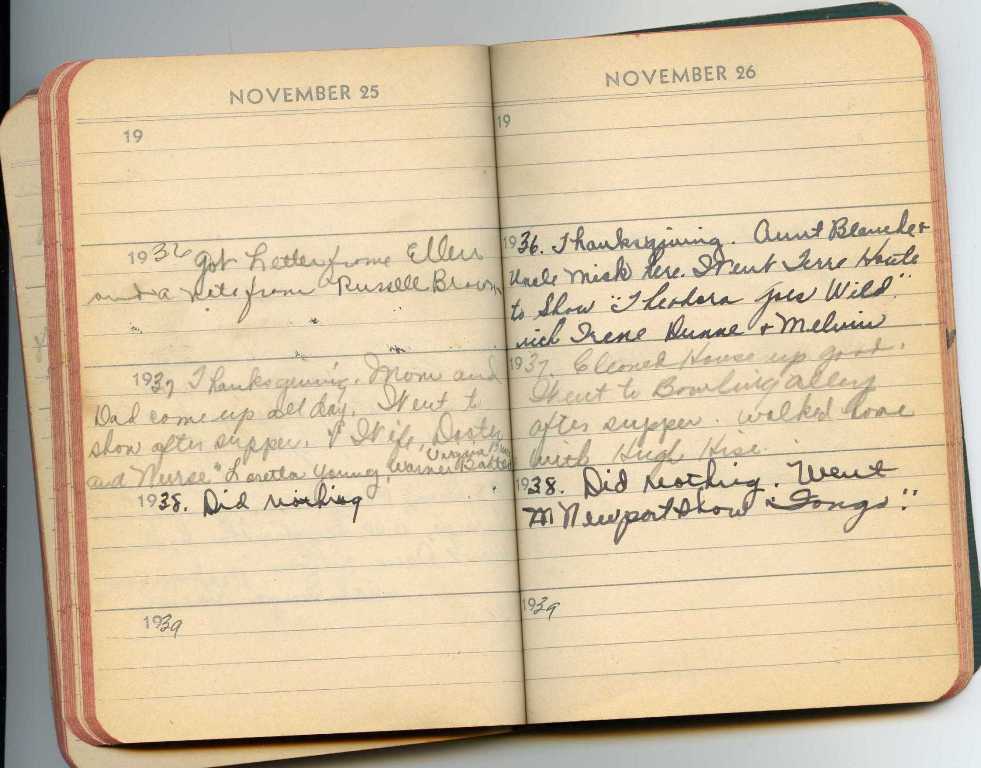 NOVEMBER 25
19
1936 Got Letter frome Ellen
and a note from Russelle Brown
1937 Thanksgiving. Mom and
Dad come up all day. Went to
show after supper. "Wife, Doctor
and Nurse" Loretta Young, Warner Baxter
Virginia Bruce
1938. Did nothing
1939
NOVEMBER 26
19
1936. Thanksgiving. Aunt Blanche +
Uncle Misk here. Went Terre Haute
to Show "Theodora Goes Wild"
with Irene Dunne + Melvin
1937. Cleaned House up good.
Went to Bowling alley
after supper. walked home
with Hugh Hise.
1938. Did nothing. Went
to Newport Show
1939